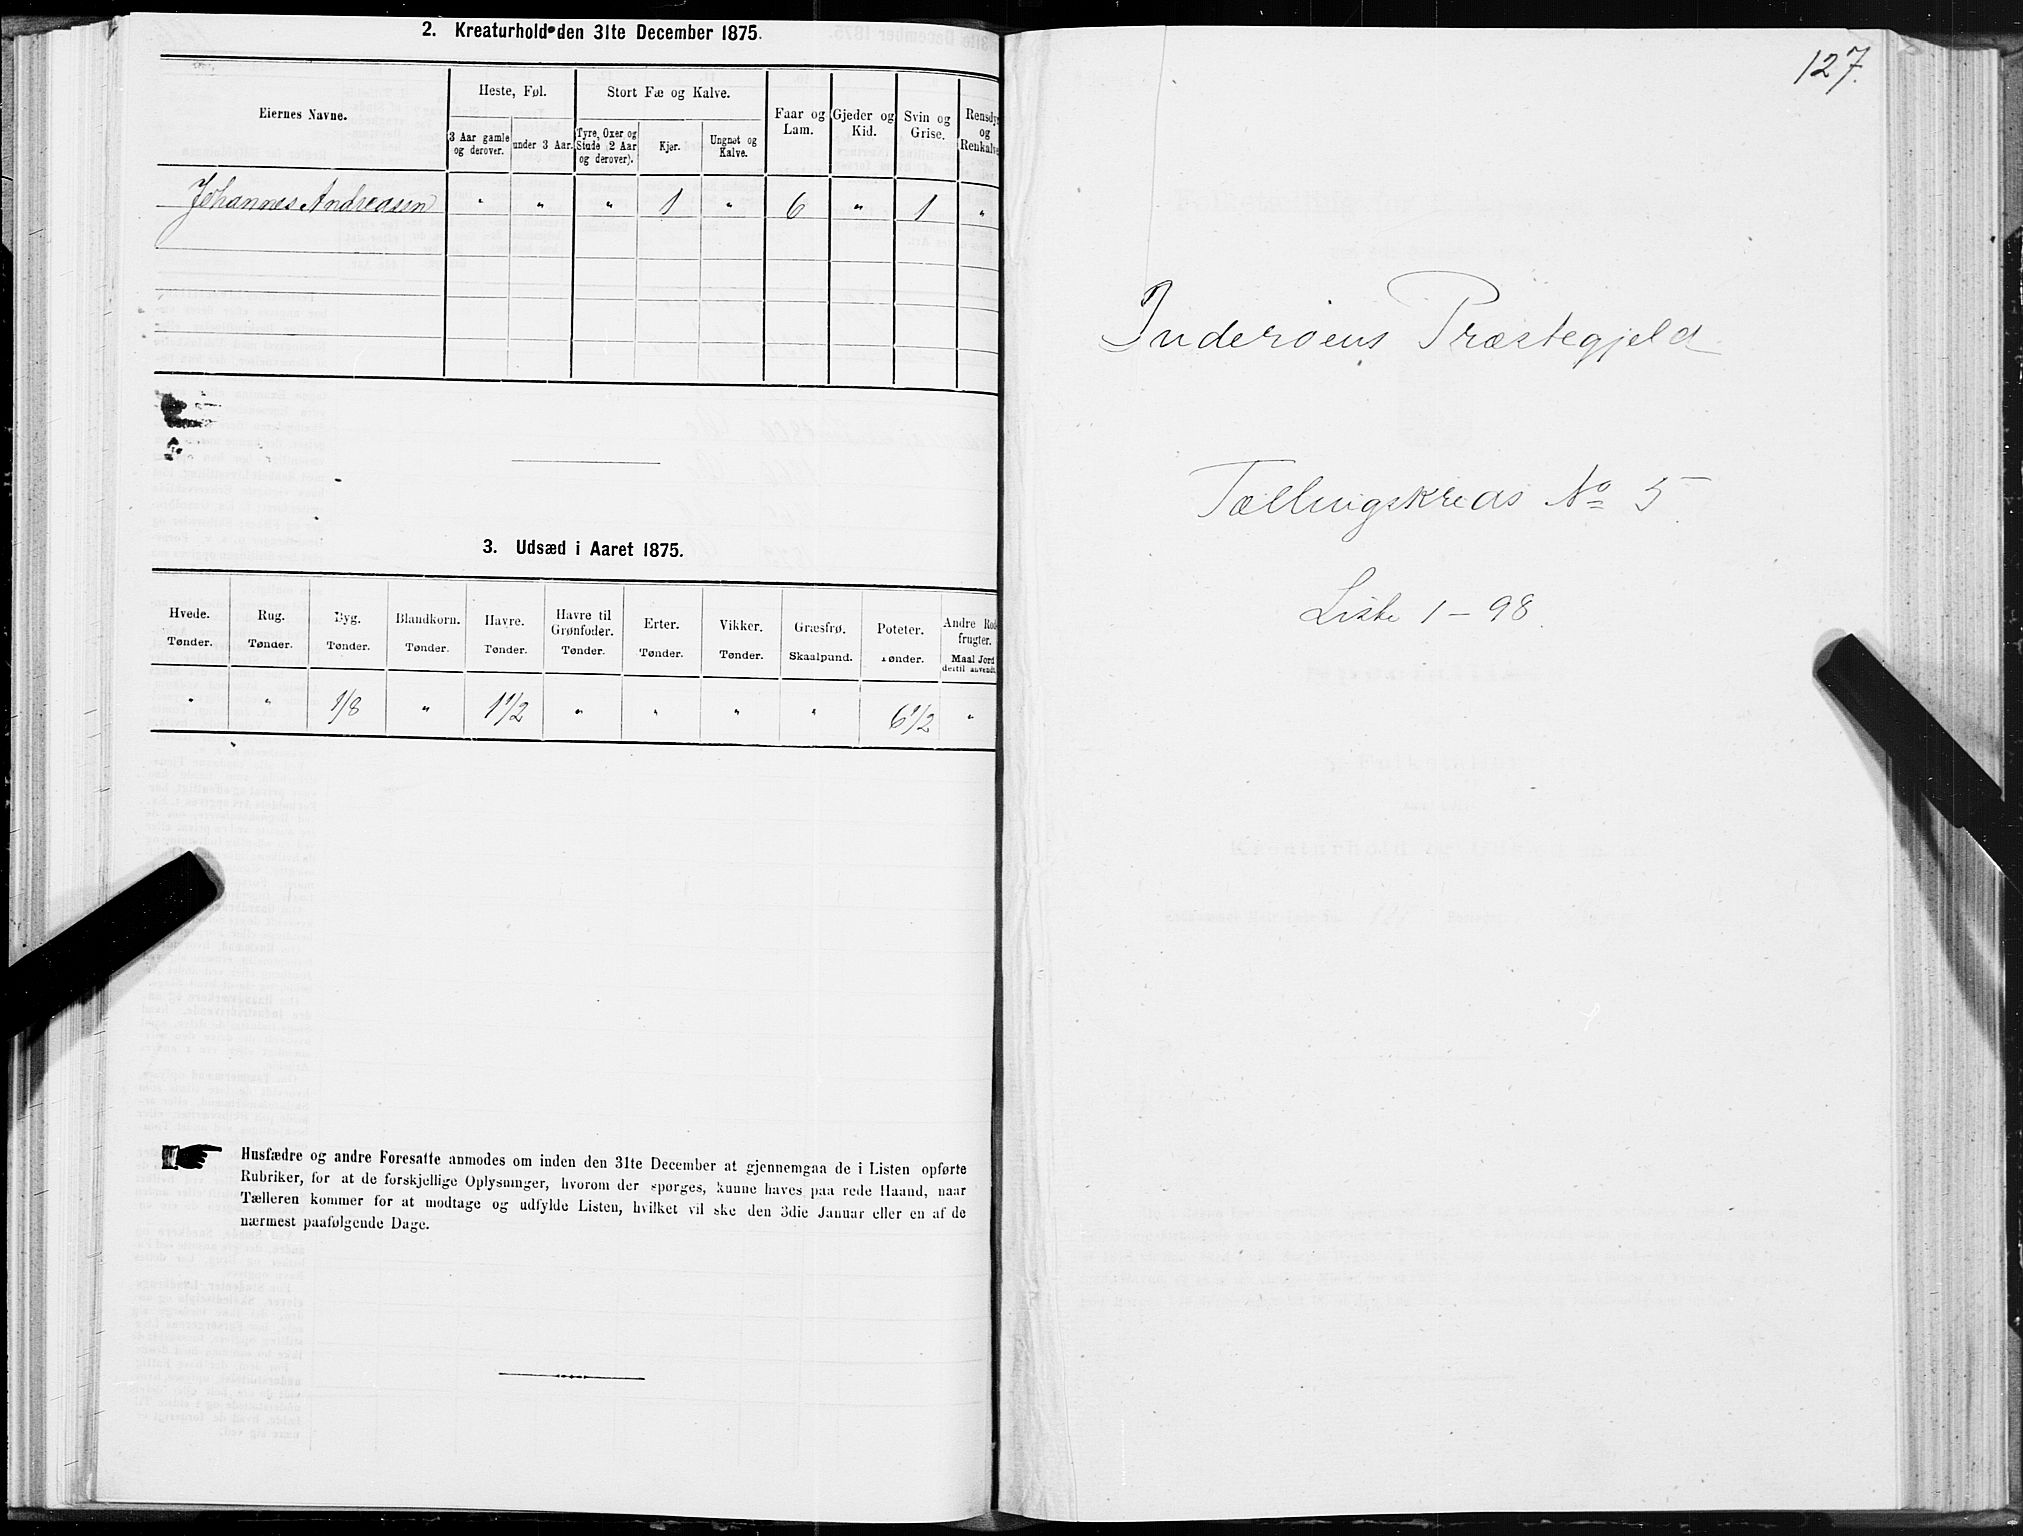 2. Kreaturhold den 31te December 1875.
Eiernes Navne.
Heste, Føl.
Stort Fæ og Kalve.
Faar og Lam.
Gjeder og Kid.
Svin og Grise.
Rensdyr og Renkalve
3 Aar gamle og derover.
under 3 Aar.
Tyre, Oxer og Stude (2 Aar og derover).
Kjør.
Ungnøt og Kalve.
Johannes Andreasen " " " 1 " 6 " 1 "
3. Udsæd i Aaret 1875.
Hvede. Rug. Byg. Blandkorn. Havre. Havre til Grønfoder. Erter. Vikker. Græsfrø. Poteter. Andre Rodfrugter.
Tønder. Tønder. Tønder. Tønder. Tønder. Tønder. Tønder. Tønder. Skaalpund. Tønder. Maal Jord dertil anvendt.
" " 1/8 " 1 1/2 " " " " 6 1/2 "
Husfædre og andre Foresatte anmodes om inden den 31te December at gjennemgaa de i Listen opførte
Rubriker, for at de forskjellige Oplysninger, hvorom der spørges, kunne haves paa rede Haand, naar
Tælleren kommer for at modtage og udfylde Listen, hvilket vil ske den 3die Januar eller en af de
nærmest paafølgende Dage.
127.
Inderøens Præstegjeld
Tællingskreds No 5.
Liste 1-98.